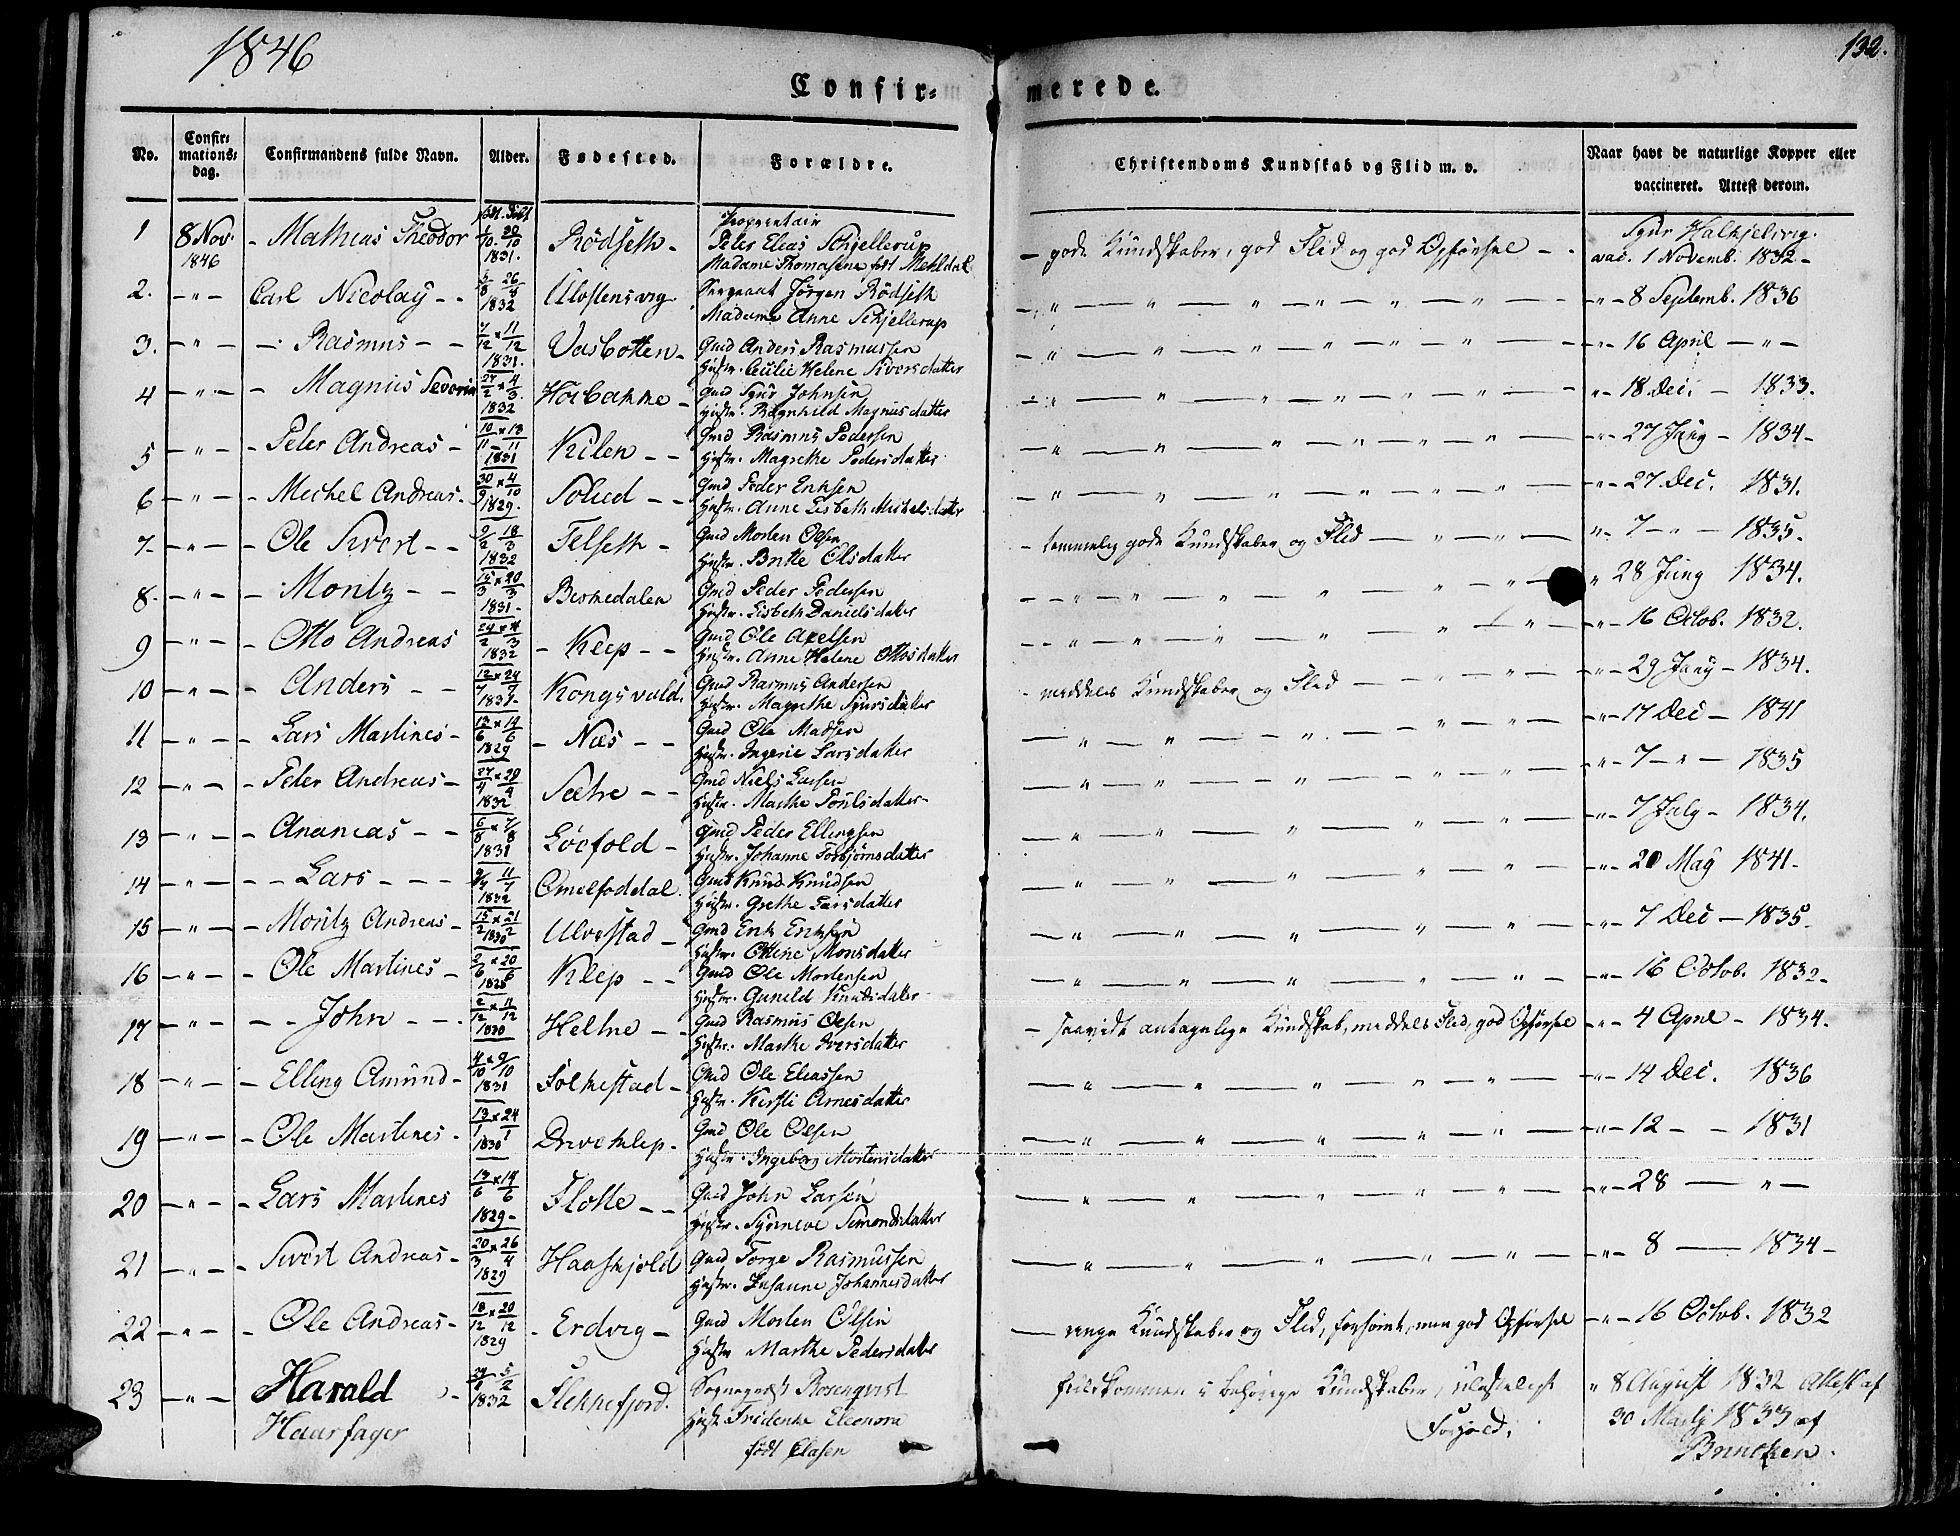 1846
132.
Confir= merede.
No. Confir=mations=dag. Confirmandens fulde Navn. Alder. Fødested. Forældre. Christendoms Kundskab og Flid m. v. Naar havt de naturlige Kopper eller vaccineret. Attest derom.
1 8 Nov. 1846 - Mathias Theodor 1831. Rødseth - Proprietair Peter Elias Schjellerup Madame Thomasine født Mehldal - gode Kundskaber, god Flid og god Opførsel - Sgur Halkjelsvig. vac. 1 Novemb. 1832 -
2. - " - Carl Nicolay - - 5/8 26/8 1832 Ulvstensvig Sergeant Jørgen Rødseth Madame Anne Schjellerup - " - " - " - 8 Septemb. 1836
3. - " - - Rasmus - - 7/12 x 11/12 1831. Vasbotten - Gmd Anders Rasmussen Hustr. Cecilie Helene Siversdatter - " - " - " - 16 April - " -
4 - " - - Magnus Severin 27/2 x 4/3. 1832 Horbakke - Gmd Sgur Johnsen Hustr. Ragnhild Magnusdatter - " - " - " - 18 Dec. - 1833.
5 - " - - Peter Andreas - 10/11 x 13/11 1831 Kilen - - Gmd Rasmus Pedersen Hustr. Magrethe Pedersdatter - " - " - " - 27 Jany - 1834 -
6 - " - - Michel Andreas - 30/9 x 4/10 1829. Folied - - Gmd Peder Eriksen Hustr. Anne Lisbeth Michelsdatter - " - " - " - 27 Dec. 1831.
7 - - " - - Ole Sivert - - 9/2 18/3 1832 Felseth - Gmd Morten Olsen Hustr. Britte Olsdatter - temmelig gode Kundskaber og Flid - " - " - 7 - " - 1835.
8 - - " - - Moritz - - 15/3 x 20/3 1831 - Bernedalen Gmd Peder Pedersen Hustr. Lisbeth Danielsdatter - " - " - " 28 Juny 1834.
9 - " - - Otto Andreas 24/2 x 4/3 1832 - Klep - - Gmd Ole Axelsen Hustr. Anne Helene Ottosdatter - " - " - " - 16 Octob. 1832.
10 - " - - Anders - - 12/7 x 24/7 1831 - Kongsvold. Gmd Rasmus Andersen Hustr. Magrethe Sjursdatter - meddels Kundskaber og Flid - " - " - 29 Jany - 1834.
11 - " - - Lars Martines - 13/6 x 14/6 1829 - Næs - - Gmd Ole Madsen Hustr. Ingerie Larsdatter - " - " - " - 17 Dec - 1841
12 - " - - Peter Andreas - 27/4 x 28/4 1832 Sætre - - Gmd Niels Larsen Hustr. Marthe Poulsdatter - - " - " - " - 7 - " - 1835
13 - " - - Ananias - - 6/8 x 7/8 1831 Løvfold - Gmd Peder Ellingsen Hustr. Johanne Torbjørnsdatter - " - " - " - 7 July - 1834.
14 - " - - - Lars - - - 9/7 11/7 1832 Omelfoddal. Gmd Knud Knudsen Hustr. Grethe Larsdatter - " - " - " - 20 May 1841 -
15 - " - - Moritz Andreas - 15/2 x 21/2 1830 Ulvestad - Gmd Erik Eriksen Hustr. Ottine Monsdatter - " - " - " - 7 Dec - 1835 -
16 - " - - Ole Martines - 2/6 x 20/6 1828 Klep - - Gmd Ole Mortensen Hustr. Gunild Knudsdatter - " - " - " - 16 Octob. 1832 -
17 - " - - - John - - - 2/12 x 11/12 1830 Heltne - - Gmd Rasmus Olsen Hustr. Marthe Iversdatter - saavidt antagelige Kundskab, meddels Flid, god Opførsel - " - 4 April - 1834.
18 - " - - Elling Amund - 4/10 x 9/10 1831 Folkestad - Gmd Ole Eliassen Hustr. Kirsti Arnesdatter - " - " - " - 14 Dec. 1836
19 - " - - Ole Martines - 13/1 x 24/1 1830 Driveklep - Gmd Ole Olsen Hustr. Ingeborg Mortensdatter - " - " - " - 12 - - 1831
20 - " - - Lars Martines 13/6 x 14/6 1829 - Flotte - - Gmd John Larsen Hustr. Synneve Simonsdatter - " - " - " - 28 - " -
21 - " - - Sivert Andreas - 20/3 x 26/4 1829 Haaskjold Gmd Torge Rasmussen Hustr. Susanne Johannesdatter - " - " - " - 8 - 1834 -
22 - " - - Ole Andreas - 18/12 x 20/12 1829 - Erdvig - Gmd Morten Olsen Hustr Marthe Pedersdatter - ringe Kundskaber og Flid, forsømt, men god Opførsel - " - 16 Octob. 1832
23 - " - Harald Haarfager 1832 Flekkefjord. Sognepræst Rosenqvist Hustr. Fridericke Eleonora født Clasen fuldkommen i Religions Kundskaber, ulasteligt Forhold. " 8 August 1832 Attest af 30 Marty 1833 af Brincken.